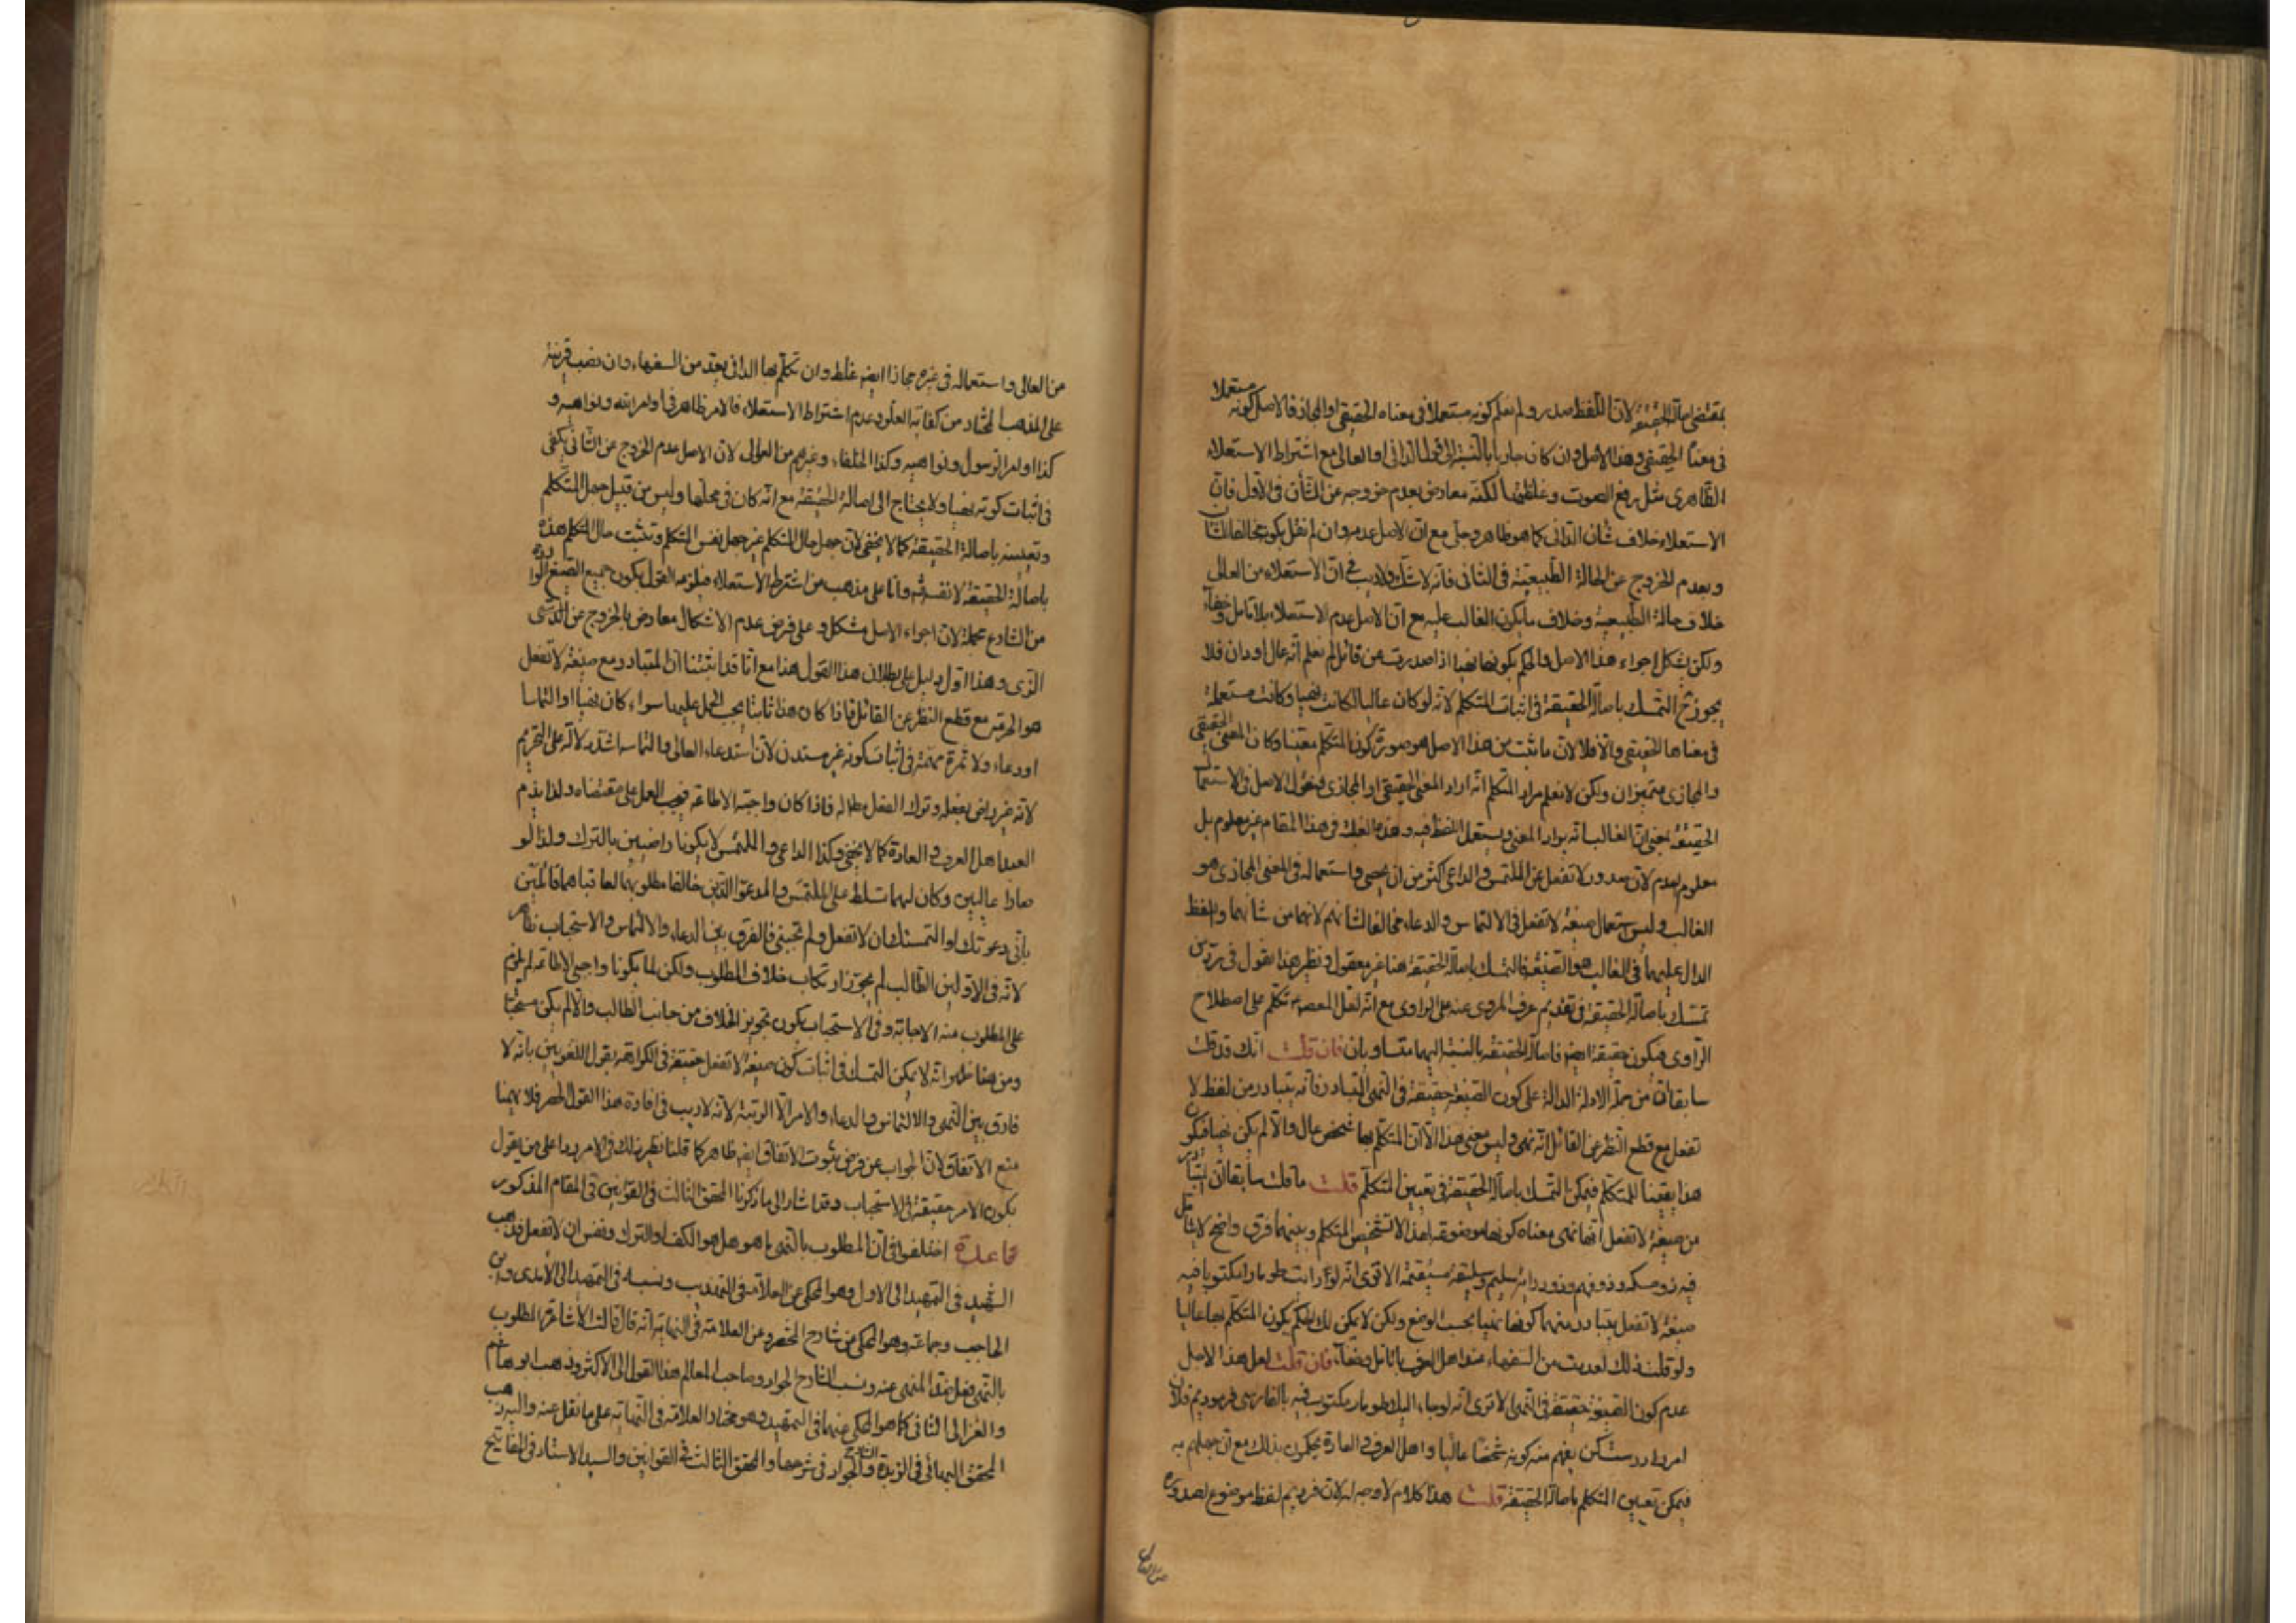 بمقتضى اصالة الحقيقة لان اللفظ صدر ولم نعلم كونه مستعملا فى معناه الحقيقى او المجاز فالاصل كونه مستعملا
فى معناه الحقيقى وهذا الاصل وان كان جاريا بالنسبة الى قول الدانى او العالى مع اشتراط الاستعلاء
الظاهرى مثل رفع الصوت وغلظتها لكنه معارض بعدم خروجه عن الشأن فى الاول فان
الاستعلاء خلاف شان الدانى كما هو ظاهر وجلى مع ان الاصل عدمه وان لم نقل بكونه مخالفا للشان
وبعدم الخروج عن الحالة الطبيعية فى الثانى فانه لا شك ولا ريب فى ان الاستعلاء من العالى
خلاف حالة الطبيعية وخلاف ما يكون الغالب عليه مع ان الاصل عدم الاستعلاء بلا تامل وخفاء
ولكن يشكل اجراء هذا الاصل والحكم بكونها نهيا اذا صدرت من قائل لم نعلم انه عال او دان فلا
يجوز ح التمسك باصالة الحقيقة فى اثبات المتكلم لانه لو كان عاليا لكانت نهيا وكانت مستعملة
فى معناها الحقيقى والا فلا لان ما ثبت من هذا الاصل هو صورة كون المتكلم معينا وكان المعنى الحقيقى
والمجازى متميزان ولكن لا نعلم مراد المتكلم انه اراد المعنى الحقيقى او المجازى فنقول الاصل فى الاستعمال
الحقيقة بمعنى ان الغالب انه يراد المعنى ويستعمل اللفظ فيه وهذه الغلبة فى هذا المقام غير معلوم بل
معلوم العدم لان صدور لا تفعل عن الملتمس والداعى اكثر من ان يحصى واستعماله فى المعنى المجازى هو
الغالب وليس استعمال صيغة لا تفعل فى الالتماس والدعاء مخالفا لشانهم لانهما من شانهما واللفظ
الدال عليهما فى الغالب هو الصيغة فالتمسك باصالة الحقيقة هنا غير معقول ونظير هذا نقول فى رد من
تمسك باصالة الحقيقة فى تقديم عرف المروى عنه على الراوى مع انه لعل المعصوم تكلم على اصطلاح
الراوى فيكون حقيقة ايضا فاصالة الحقيقة بالنسبة اليهما متساويان فان قلت انك قد قلت
سابقا ان من جملة الادلة الدالة على كون الصيغة حقيقة فى النهى التبادر فانه يتبادر من لفظ لا
تفعل مع قطع النظر عن القائل انه نهى وليس معنى هذا الا ان المتكلم بها شخص عال والا لم يكن نهيا فيكون
هذا يقينا للمتكلم فيمكن التمسك باصالة الحقيقة فى تعيين المتكلم قلت ما قلت سابقا ان التبادر
من صيغة لا تفعل انها نهى معناه كونها موضوعة لهذا لا تشخيص المتكلم وبينهما فرق واضح لا يتامل
فيه ذو مسكة وذو فهم وذو دراية سليم وسليقة مستقيمة الا ترى انه لو رايت طومارا مكتوبا فيه
صيغة لا تفعل يتبادر منهما كونها نهيا بحسب الوضع ولكن لا يمكن لك الحكم بكون المتكلم بها عاليا
ولو قلت ذلك لعديت من السفهاء عند اهل العرف بلا تامل وخفاء فان قلت لعل هذا لاجل
عدم كون الصيغة حقيقة فى النهى الا ترى انه لو جاء اليك طومار مكتوب فيه بالفارسى فرموديم فلان
امر را درست كن يفهم منه كونه شخصا عاليا واهل العرف والعادة يحكمون بذلك مع ان جهلهم به
فيمكن تعيين المتكلم باصالة الحقيقة قلت هذا كلام لا وجه له لان فرموديم لفظ موضوع لصدوره
من العالى واستعماله فى غيره مجازا ايضا غلط وان تكلم بها الدانى يعد من السفهاء وان نصب قرينة
على المذهب المختار من كفاية العلو وعدم اشتراط الاستعلاء فالامر ظاهر فى اوامر الله ونواهيه و
كذا اوامر الرسول ونواهيه وكذا الخلفاء وغيرهم من العوالى لان الاصل عدم الخروج عن الشانى يكفى
فى اثبات كونه نهيا ولا يحتاج الى اصالة الحقيقة مع انه كان فى محلها وليس من قبيل جهل المتكلم
وتعيينه باصالة الحقيقة كما لا يخفى لان جهل حال المتكلم غير جهل نفس المتكلم وتثبت حال المتكلم هذه
باصالة الحقيقة لا نفسه واما على مذهب من اشترط الاستعلاء فيلزمه القول بكون جميع الصيغ الواردة
من الشارع مجملة لان اجراء الاصل مشكل وعلى فرض عدم الاشكال معارض بالخروج عن
الزى وهذا اول دليل على بطلان هذا القول هذا مع انا قد اثبتنا ان المتبادر مع صيغة لا تفعل
هو الحرمة مع قطع النظر عن القائل فاذا كان هذا ثابتا يجب الحمل عليها سواء كان نهيا او التماسا
او دعاء ولا ثمرة مهمة فى اثبات كونه غير مستدن لان استدعاء العالى والتماسه اشد دلالة على التحريم
لانه غير راض بفعله وترك الفعل طاله فاذا كان واجبة الاطاعة فيجب العمل على مقتضاه ولذا يذم
العبد اهل العرف والعادة كما لا يخفى وكذا الداعى والملتمس لا يكونا راضيين بالترك ولذا لو
صارا عاليين وكان لهما تسلط على الملتمس والمدعو الذين خالفا مطلوبهما لعاقباهما قائلين
بانى دعوتك او التمستك ان لا تفعل ولم تجبنى فالفرق بين الدعاء والالتماس والاستحباب ظاهر
لانه فى الاولين الطالب لم يجوز ارتكاب خلاف المطلوب ولكن لما يكونا واجبى الاطاعة لم يلزم
على المطلوب منه الاجابة وفى الاستحباب يكون تجويز الخلاف من جانب الطالب والا لم يكن مستحبا
ومن هنا ظهر انه لا يمكن التمسك فى اثبات كون صيغة لا تفعل حقيقة فى الكراهة بقول اللغويين بانه لا
فارق بين النهى والالتماس والدعاء والامر الا الرتبة لانه لا ريب فى افادة هذا القول الحصر فلا يهمنا
منع الاتفاق لان الجواب عن فرض ثبوت الاتفاق ايضا ظاهر كما قلنا نظير ذلك فى الامر ردا على من يقول
بكون الامر حقيقة فى الاستحباب وقد اشار الى ما ذكرنا المحقق الثالث فى القوانين فى المقام المذكور
قاعدة اختلفوا فى ان المطلوب بالنهى ما هو هل هو الكف او الترك ونفس ان لا تفعل فذهب
الشهيد فى التمهيد الى الاول وهو المحكى عن العلامة فى التهذيب ونسبه فى التمهيد الى الآمدى وابن
الحاجب وجماعة وهو المحكى عن شارح المختصر وعن العلامة فى النهاية انه قال قالت الاشاعرة المطلوب
بالنهى فعل ضد المنهى عنه ونسب الشارح الجواد وصاحب المعالم هذا القول الى الاكثر وذهب ابو هاشم
والغزالى الثانى كما هو المحكى عنهما فى التمهيد وهو مختار العلامة فى النهاية على ما نقل عنه واليه ذهب
المحقق البهائى فى الزبدة والشارح الجواد فى شرحها والمحقق الثالث فى القوانين والسيد الاستاد فى المفاتيح